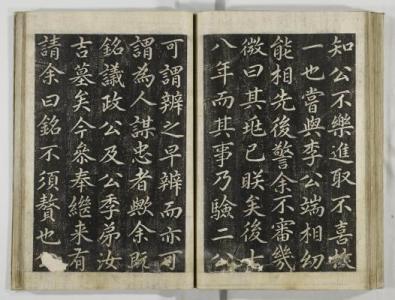 知公不樂進取不喜
一也嘗與李公端相幼
能相先後警余不審幾
微曰其垝已眹矣後十
八年而其事乃驗二公
可謂辨之早辨而亦可
謂為人謀忠者歟余既
銘議政公及公季弟汝
吉墓矣今叅奉繼来有
請余曰銘不須贅也